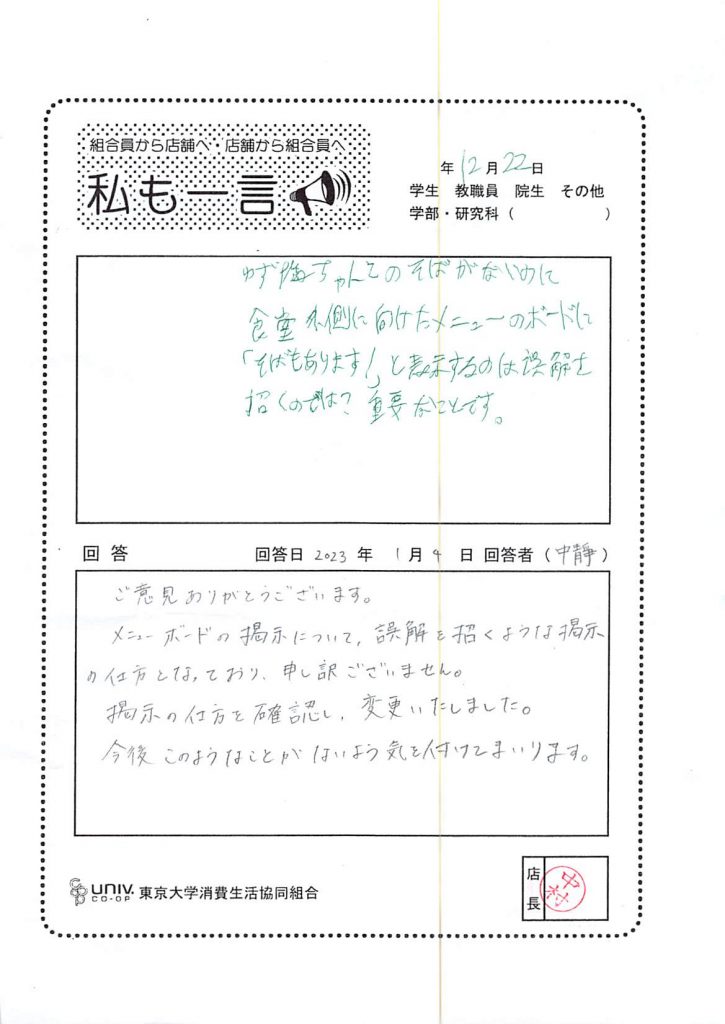 組合員から店舗へ・店舗から組合員へ
私も一言
年12月22日
学生 教職員 院生 その他
学部・研究科( )
ゆず塩ちゃんとのそばがないのに
食堂外側に向けたメニューのボードに
「そばもあります!」と表示するのは誤解を
招くのでは?重要なことです。
回答 回答日 2023 年 1月 4 日 回答者(中静)
ご意見ありがとうございます。
メニューボードの掲示について、誤解を招くような掲示
の仕方となっており、申し訳ございません。
掲示の仕方を確認し、変更いたしました。
今後このようなことがないよう気を付けてまいります。
UNIV.
CO-OP
東京大学消費生活協同組合
店長
中村